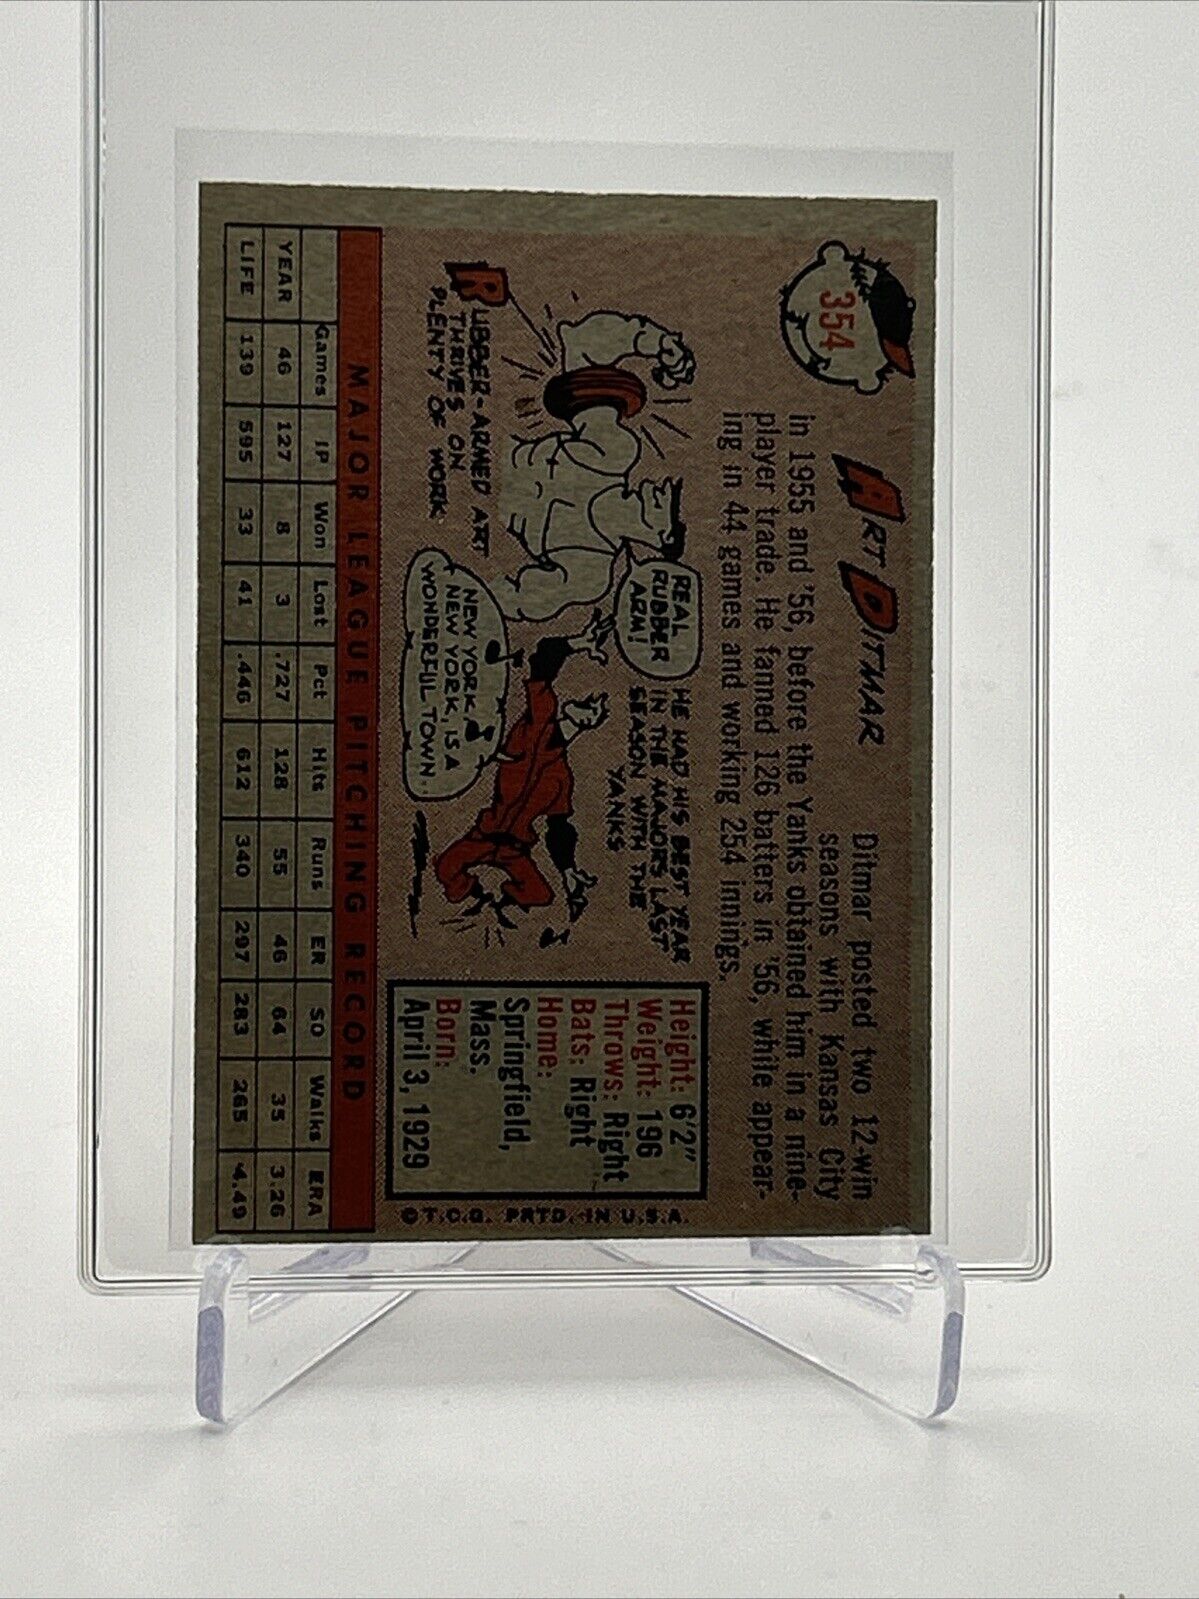 354
ART DITMAR
Ditmar posted two 12-win
seasons with Kansas City
in 1955 and '56, before the Yanks obtained him in a nine-
player trade. He fanned 126 batters in '56, while appear-
ing in 44 games and working 254 innings.
RUBBER-ARMED ART
THRIVES ON
PLENTY OF WORK
REAL
RUBBER
ARM!
HE HAD HIS BEST YEAR
IN THE MAJORS LAST
SEASON WITH THE
YANKS
NEW YORK,
NEW YORK, IS A
WONDERFUL TOWN..
Height: 6'2"
Weight: 196
Throws: Right
Bats: Right
Home:
Springfield,
Mass.
Born:
April 3, 1929
© T.C.G. PRTD. IN U.S.A.
MAJOR LEAGUE PITCHING RECORD
Games IP Won Lost Pct Hits Runs ER SO Walks ERA
YEAR 46 127 8 3 .727 128 55 46 64 35 3.26
LIFE 139 595 33 41 .446 612 340 297 283 265 4.49